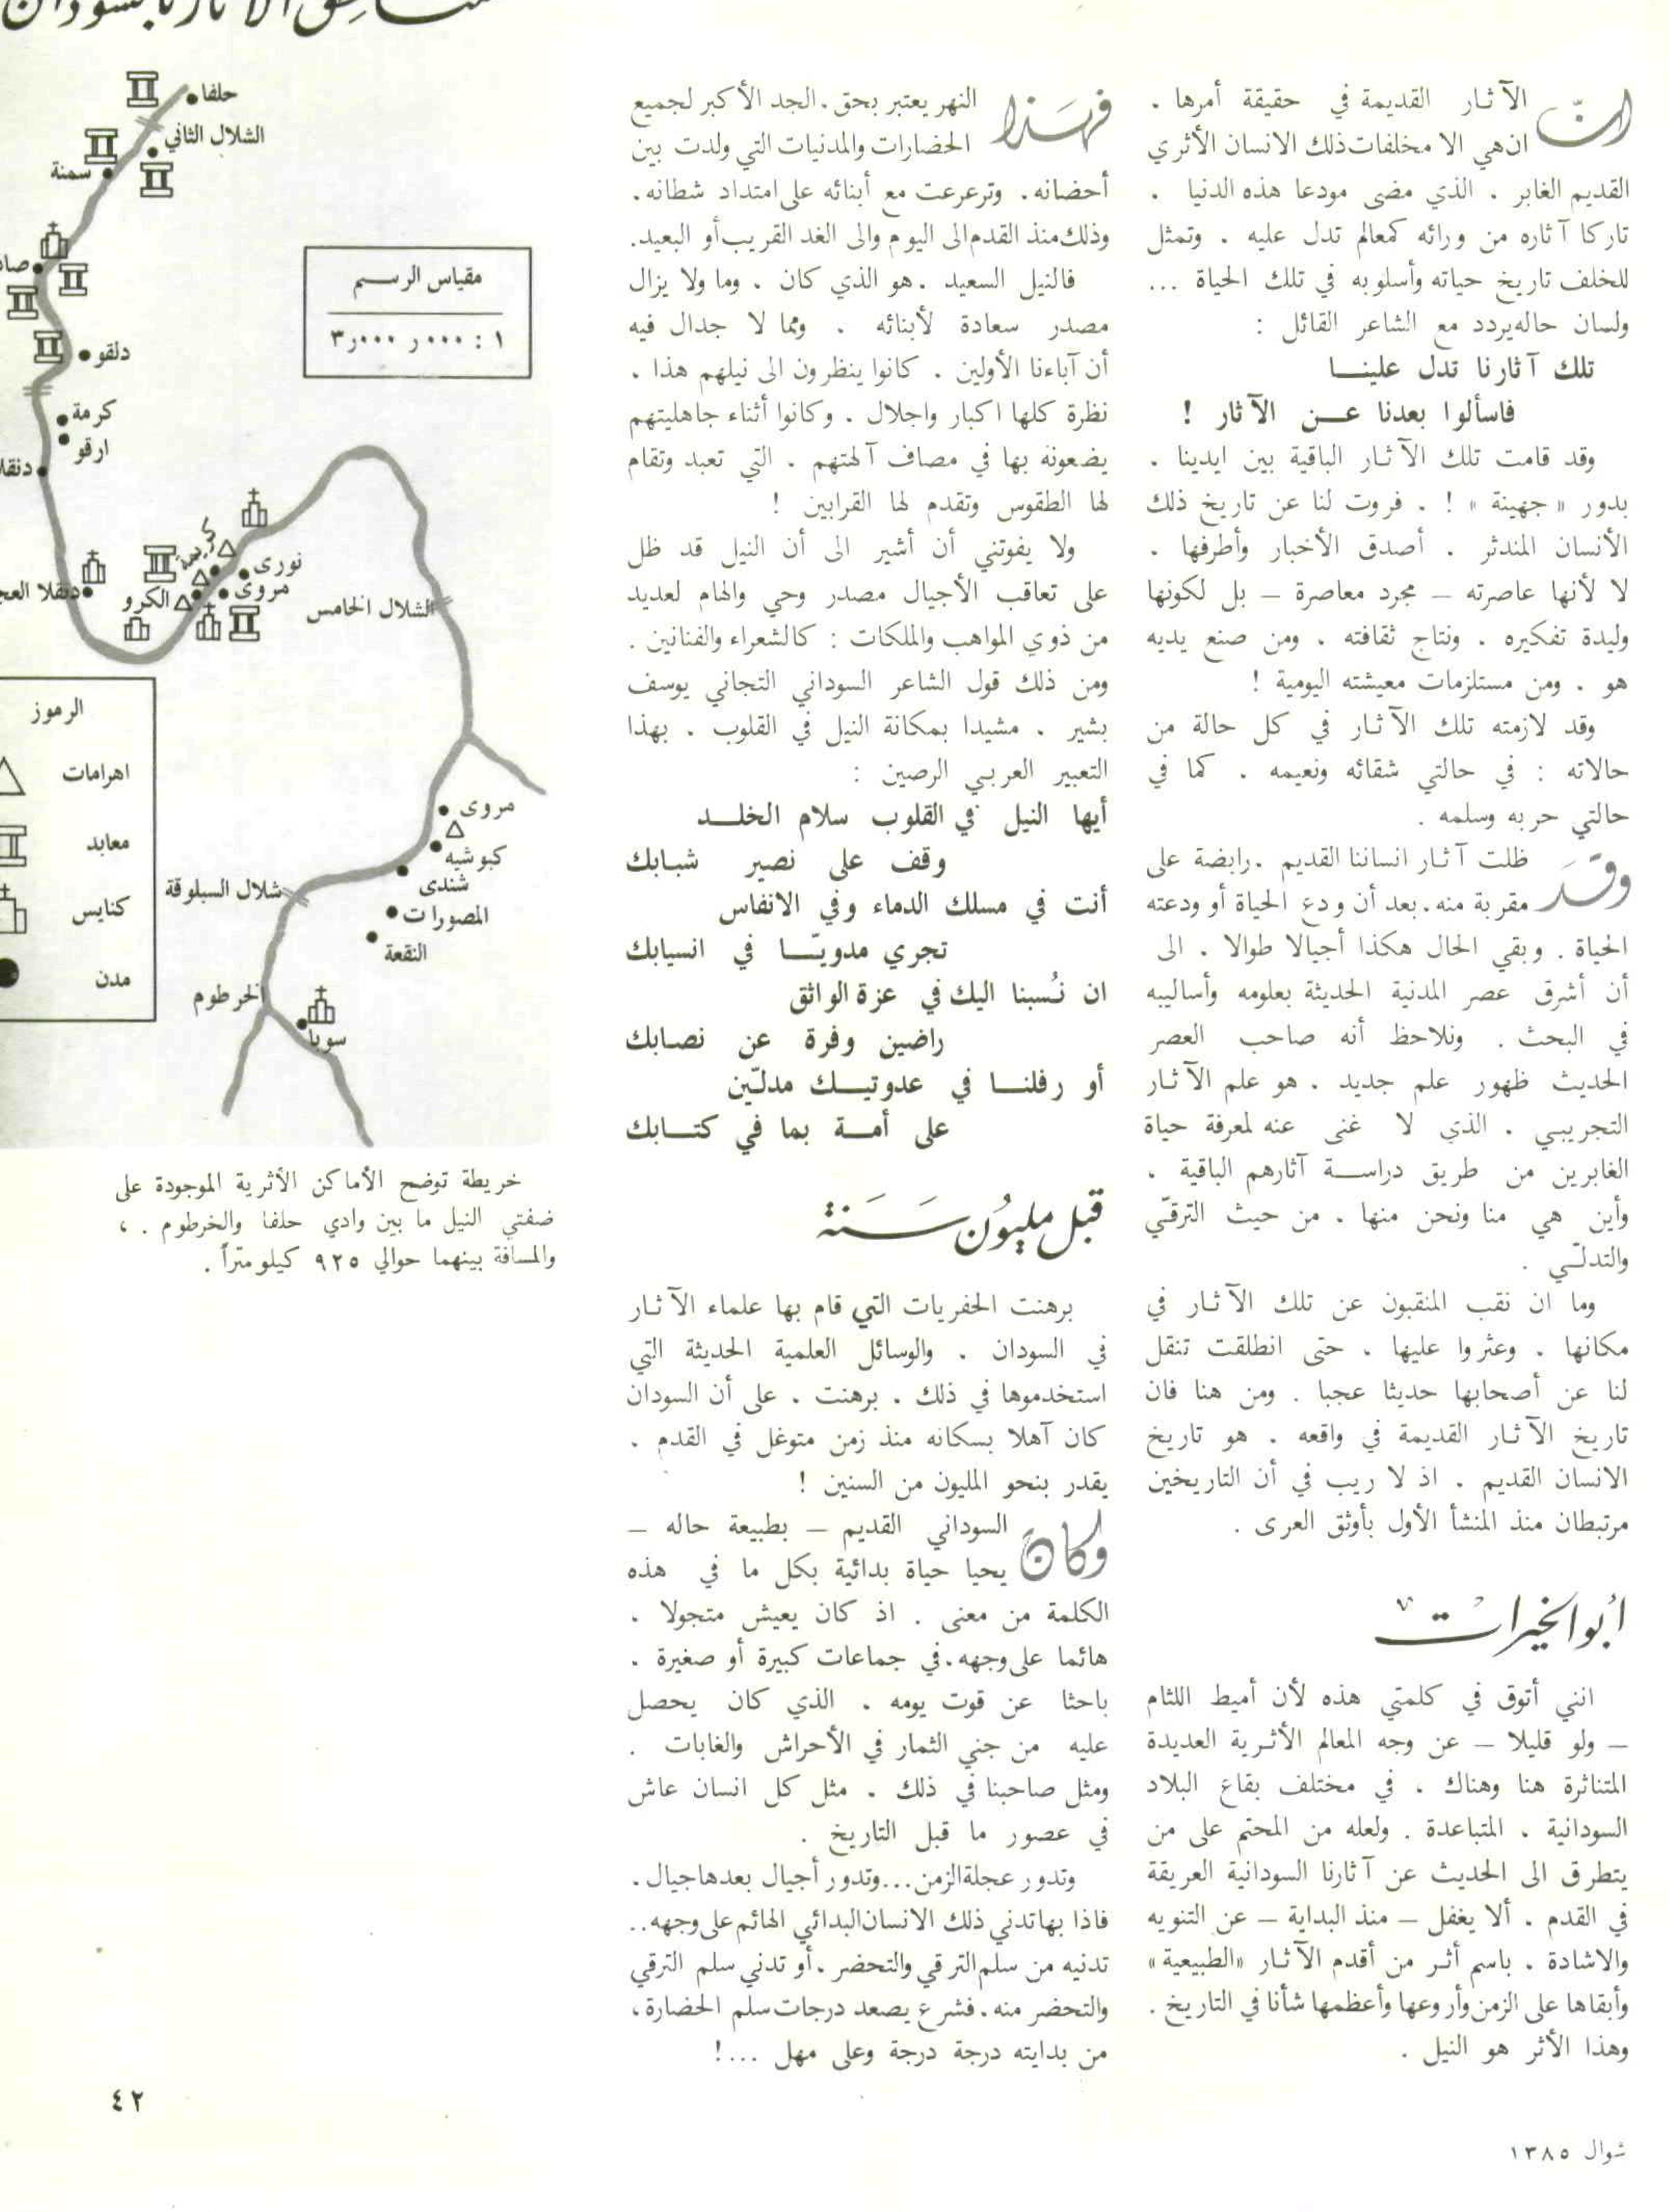 انّ الآثار القديمة في حقيقة أمرها .
ان هي الا مخلفات ذلك الانسان الأثري
القديم الغابر . الذي مضى مودعا هذه الدنيا .
تاركا آثاره من ورائه كمعالم تدل عليه . وتمثل
للخلف تاريخ حياته وأسلوبه في تلك الحياة ...
ولسان حاله يردد مع الشاعر القائل :
تلك آثارنا تدل علينا
فاسألوا بعدنا عن الآثار !
وقد قامت تلك الآثار الباقية بين ايدينا .
بدور « جهينة » ! . فروت لنا عن تاريخ ذلك
الأنسان المندثر . أصدق الأخبار وأطرفها .
لا لأنها عاصرته – مجرد معاصرة – بل لكونها
وليدة تفكيره . ونتاج ثقافته . ومن صنع يديه
هو . ومن مستلزمات معيشته اليومية !
وقد لازمته تلك الآثار في كل حالة من
حالاته : في حالتي شقائه ونعيمه . كما في
حالتي حربه وسلمه .
وقد ظلت آثار انساننا القديم . رابضة على
مقربة منه . بعد أن ودع الحياة أو ودعته
الحياة . وبقي الحال هكذا أجيالا طوالا . الى
أن أشرق عصر المدنية الحديثة بعلومه وأساليبه
في البحث . ونلاحظ أنه صاحب العصر
الحديث ظهور علم جديد . هو علم الآثار
التجريبي . الذي لا غنى عنه لمعرفة حياة
الغابرين من طريق دراسة آثارهم الباقية .
وأين هي منا ونحن منها . من حيث الترقّي
والتدلّي .
وما ان نقب المنقبون عن تلك الآثار في
مكانها . وعثروا عليها . حتى انطلقت تنقل
لنا عن أصحابها حديثا عجبا . ومن هنا فان
تاريخ الآثار القديمة في واقعه . هو تاريخ
الانسان القديم . اذ لا ريب في أن التاريخين
مرتبطان منذ المنشأ الأول بأوثق العرى .
أبو الخيرات
انني أتوق في كلمتي هذه لأن أميط اللثام
– ولو قليلا – عن وجه المعالم الأثرية العديدة
المتناثرة هنا وهناك . في مختلف بقاع البلاد
السودانية . المتباعدة . ولعله من المحتم على من
يتطرق الى الحديث عن آثارنا السودانية العريقة
في القدم . ألا يغفل – منذ البداية – عن التنويه
والاشادة . باسم أثر من أقدم الآثار «الطبيعية»
وأبقاها على الزمن وأروعها وأعظمها شأنا في التاريخ .
وهذا الأثر هو النيل .
شوال ١٣٨٥
فهذا النهر يعتبر بحق . الجد الأكبر لجميع
الحضارات والمدنيات التي ولدت بين
أحضانه . وترعرعت مع أبنائه على امتداد شطانه .
وذلك منذ القدم الى اليوم والى الغد القريب أو البعيد .
فالنيل السعيد . هو الذي كان . وما ولا يزال
مصدر سعادة لأبنائه . ومما لا جدال فيه
أن آباءنا الأولين . كانوا ينظرون الى نيلهم هذا .
نظرة كلها اكبار واجلال . وكانوا أثناء جاهليتهم
يضعونه بها في مصاف آلهتهم . التي تعبد وتقام
لها الطقوس وتقدم لها القرابين !
ولا يفوتني أن أشير الى أن النيل قد ظل
على تعاقب الأجيال مصدر وحي والهام لعديد
من ذوي المواهب والملكات : كالشعراء والفنانين .
ومن ذلك قول الشاعر السوداني التجاني يوسف
بشير . مشيدا بمكانة النيل في القلوب . بهذا
التعبير العربي الرصين :
أيها النيل في القلوب سلام الخلد
وقف على نصير شبابك
أنت في مسلك الدماء وفي الانفاس
تجري مدويّا في انسيابك
ان نُسبنا اليك في عزة الواثق
راضين وفرة عن نصابك
أو رفلنا في عدوتيك مدلّين
على أمة بما في كتابك
قبل مليون سنة
برهنت الحفريات التي قام بها علماء الآثار
في السودان . والوسائل العلمية الحديثة التي
استخدموها في ذلك . برهنت . على أن السودان
كان آهلا بسكانه منذ زمن متوغل في القدم .
يقدر بنحو المليون من السنين !
وكان السوداني القديم – بطبيعة حاله –
يحيا حياة بدائية بكل ما في هذه
الكلمة من معنى . اذ كان يعيش متجولا .
هائما على وجهه . في جماعات كبيرة أو صغيرة .
باحثا عن قوت يومه . الذي كان يحصل
عليه من جني الثمار في الأحراش والغابات .
ومثل صاحبنا في ذلك . مثل كل انسان عاش
في عصور ما قبل التاريخ .
وتدور عجلة الزمن ... وتدور أجيال بعدها جيال .
فاذا بها تدني ذلك الانسان البدائي الهائم على وجهه ..
تدنيه من سلم الترقي والتحضر . أو تدني سلم الترقي
والتحضر منه . فشرع يصعد درجات سلم الحضارة ،
من بدايته درجة درجة وعلى مهل ... !
الآثار بالسودان
حلفا
الشلال الثاني
سمنة
مقياس الرسم
١ : ٠٠٠ر ٠٠٠ر٣
دلقو
كرمة
ارقو
كريمة
نورى
مروى
الكرو
الشلال الخامس
الرموز
اهرامات
معابد
كنايس
مدن
مروى
كبوشيه
شندى
شلال السبلوقة
المصورات
النقعة
الخرطوم
سوبا
خريطة توضح الأماكن الأثرية الموجودة على
ضفتي النيل ما بين وادي حلفا والخرطوم . ،
والمسافة بينهما حوالي ٩٢٥ كيلومتراً .
٤٢